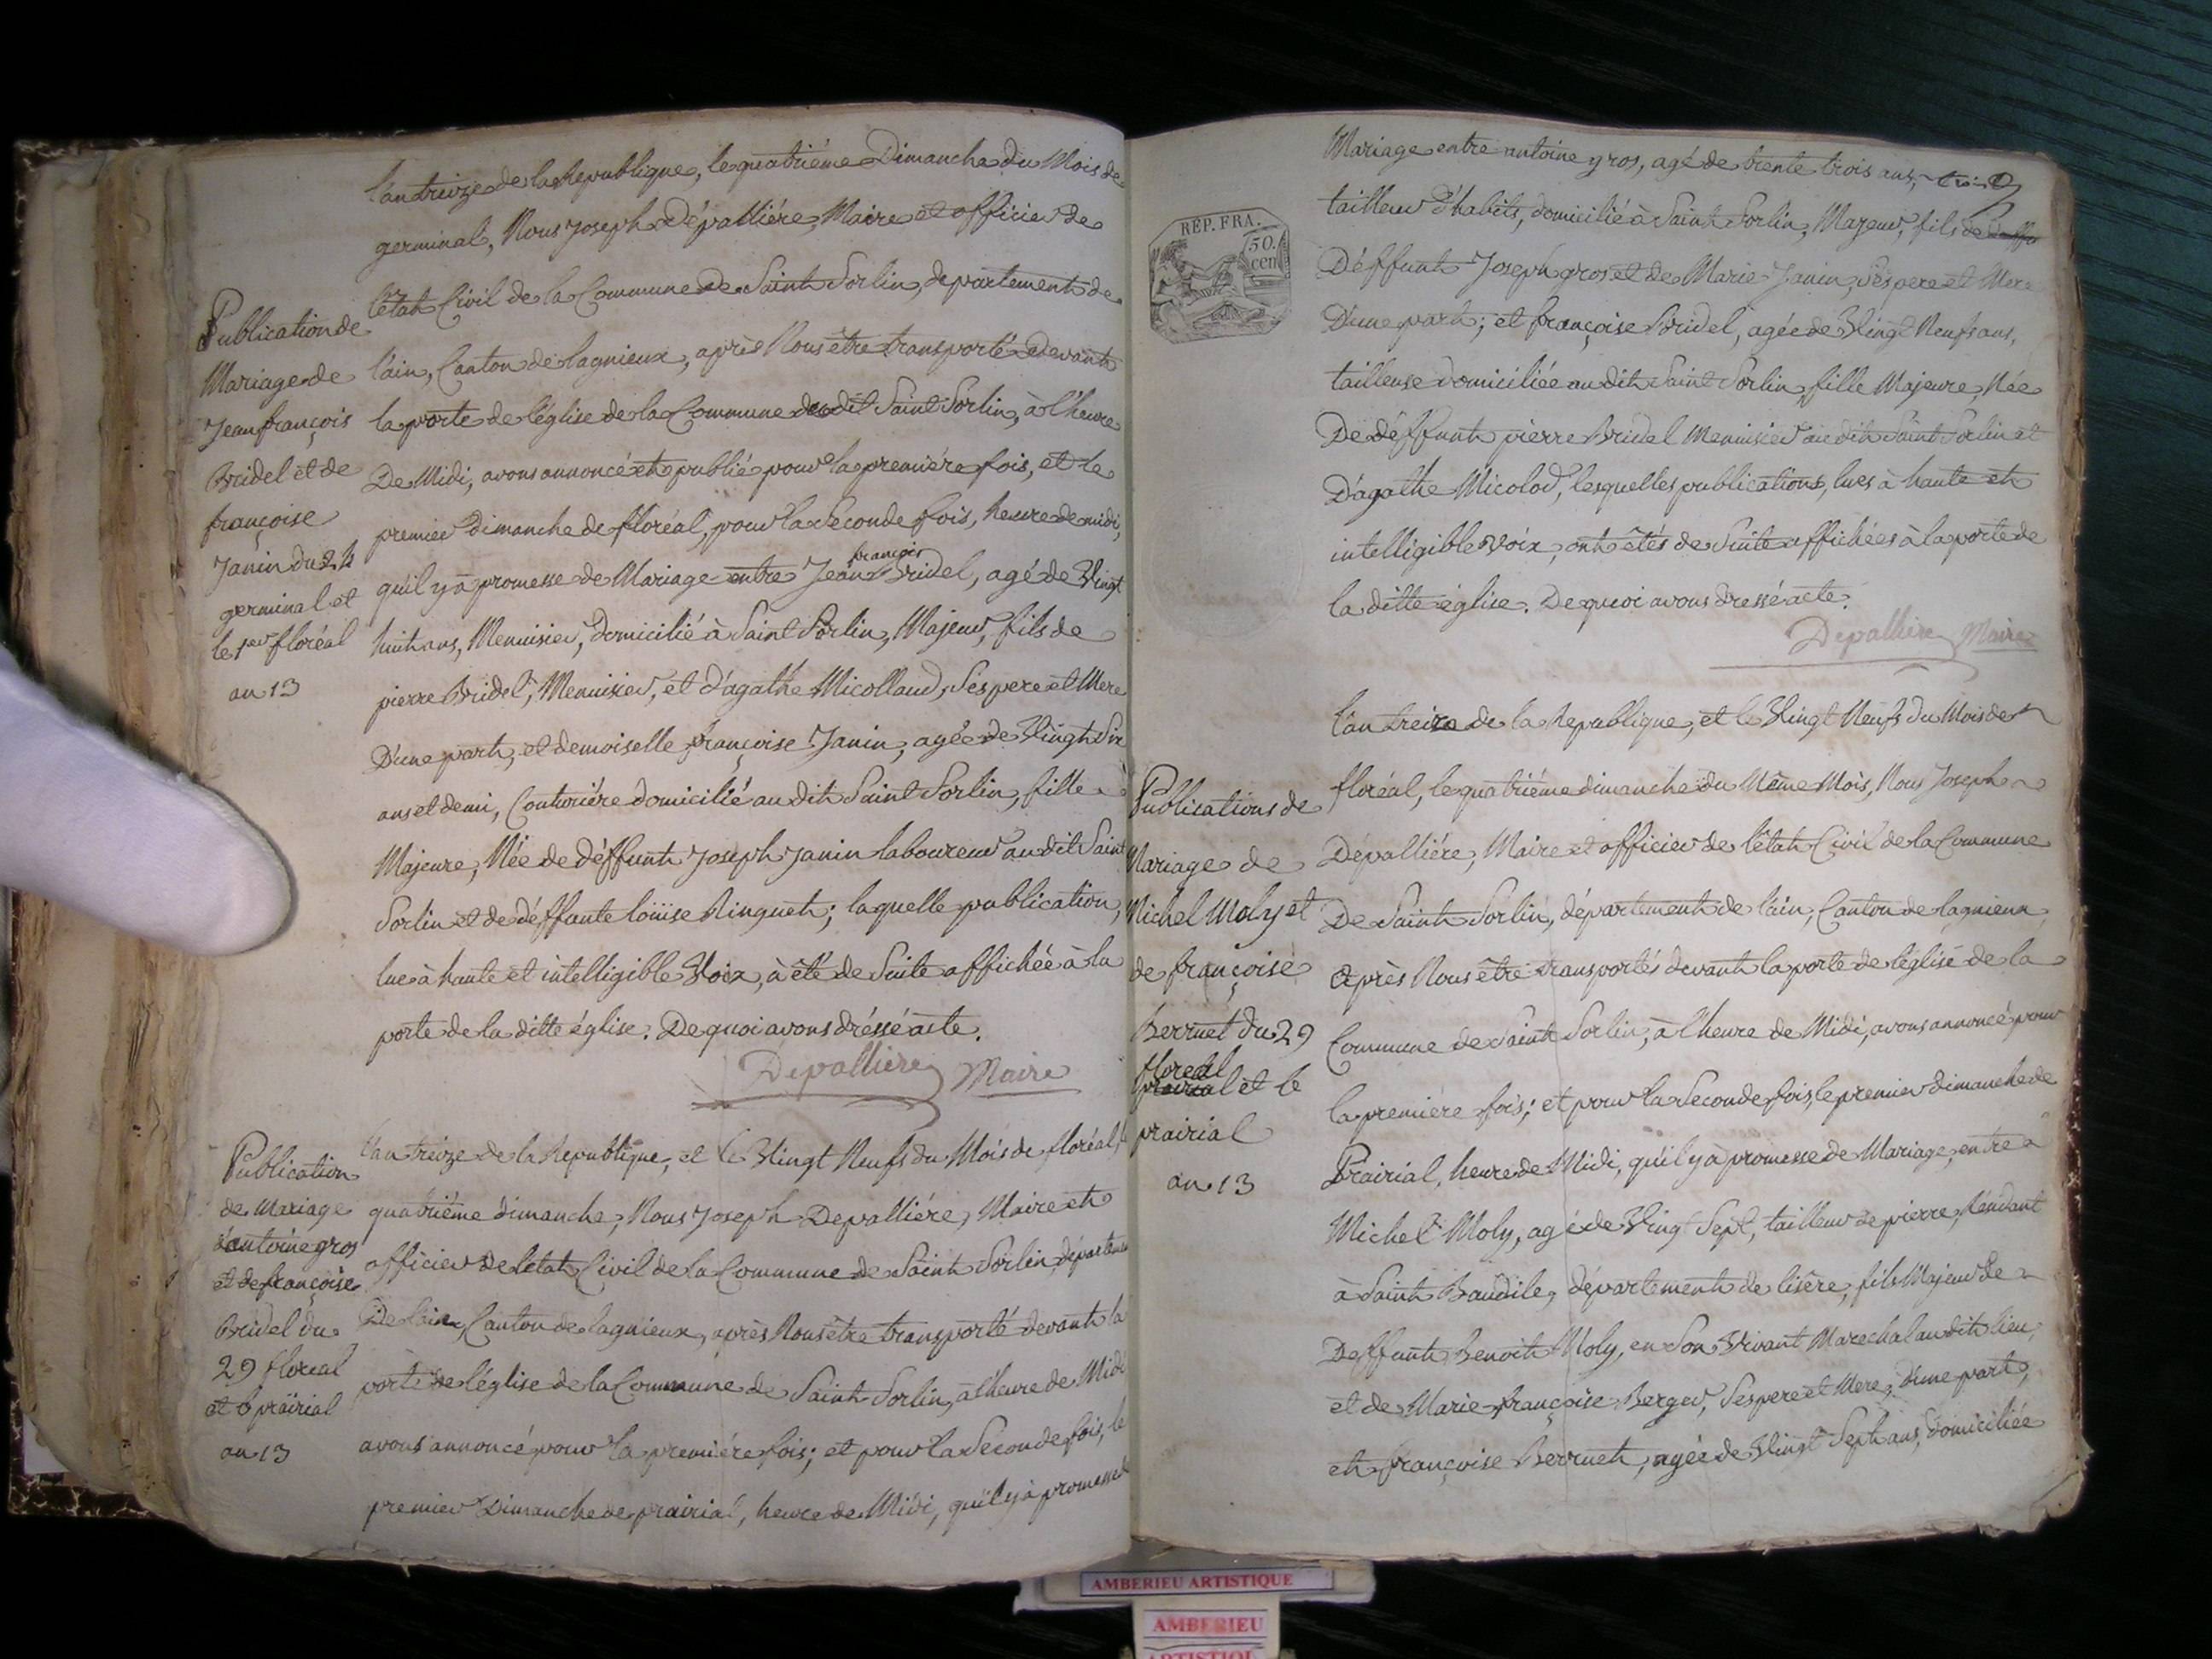 l'an treize de la Republique, le quatriéme Dimanche du Mois de
germinal, Nous Joseph Dépalliére, Maire et officier de
l'état Civil de la Commune de Saint Sorlin, departement de
l'ain, Canton de lagnieux, après Nous être transporté devant
la porte de l'église de la Commune dudit Saint Sorlin, à l'heure
De Midi, avons annoncé et publié pour la premiére fois, et le
premier dimanche de floréal, pour la Seconde fois, heure de midi,
qu'il y à promesse de Mariage entre Jean françois Bridel, agé de Vingt
huit ans, Menuisier, domicilié à Saint Sorlin, Majeur, fils de
pierre Bridel, Menuisier, et d'agathe Micolland, Ses pere et Mere
D'une part, et demoiselle françoise Janin, agée de Vingt Six
ans et demi, Couturiére domicilié au dit Saint Sorlin, fille
Majeure, Née de déffunt Joseph Janin laboureur au dit Saint
Sorlin et de déffunte loüise Ringuet; laquelle publication,
lue à haute et intelligible Voix, à été de Suite affichée à la
porte de la ditte église. De quoi avons dréssé acte.
Depalliere Maire
Publication de
Mariage de
Jean françois
Bridel et de
françoise
Janin du 24
germinal et
le 1er floréal
an 13
l'an treize de la Republique, et le Vingt Neufs du Mois de floréal, le
quatriéme dimanche, Nous Joseph Depalliére, Maire et
officier de l'etat Civil de la Commune de Saint Sorlin, departemen
De l'ain, Canton de lagnieux, après Nous être transporté devant la
porte de l'église de la Commune de Saint Sorlin, à l'heure de Midi
avons annoncé pour la premiére fois; et pour la Seconde fois, le
premier Dimanche de prairial, heure de Midi, qu'il y à promesse de
Publication
de Mariage
d'antoine gros
et de françoise
Bridel du
29 floreal
et 6 prairial
an 13
Mariage entre antoine gros, agé de trente trois ans,
tailleur d'habits, domicilié à Saint Sorlin, Majeur, fils de
Déffunt Joseph gros et de Marie Janin, Ses pere et Mere
D'une part; et françoise Bridel, agée de Vingt Neufs ans,
tailleuse domiciliée au dit Saint Sorlin, fille Majeure, Née
De déffunt pierre Bridel Menuisier au dit Saint Sorlin et
D'agathe Micolod, lesquelles publications, lues à haute et
intelligible Voix, ont étés de Suite affichées à la porte de
la ditte église. De quoi avons dressé acte.
Depalliere Maire
REP. FRA.
50.
cen
l'an treize de la Republique, et le Vingt Neufs du Mois de
floréal, le quatriéme dimanche du Même Mois, Nous Joseph
Dépalliére, Maire et officier de l'état Civil de la Commune
De Saint Sorlin, département de l'ain, Canton de lagnieux,
après Nous être transportés devant la porte de l'église de la
Commune de Saint Sorlin, à l'heure de Midi, avons annoncé pour
la premiére fois; et pour la Seconde fois, le premier dimanche de
Prairial, heure de Midi, qu'il y à promesse de Mariage, entre
Michel Moly, agé de Vingt Sept, tailleur de pierre, Résidant
à Saint Baudile, département de lisère, fils Majeur de
Deffunt Benoit Moly, en Son Vivant Marechal au dit lieu,
et de Marie françoise Berger, Ses pere et Mere, D'une part,
et françoise Berruet, agée de Vingt Sept ans, domiciliée
Publications de
Mariage de
Michel Moly et
de françoise
Berruet du 29
floreal
et le
prairial
an 13
AMBERIEU ARTISTIQUE
AMBERIEU
ARTISTIQUE